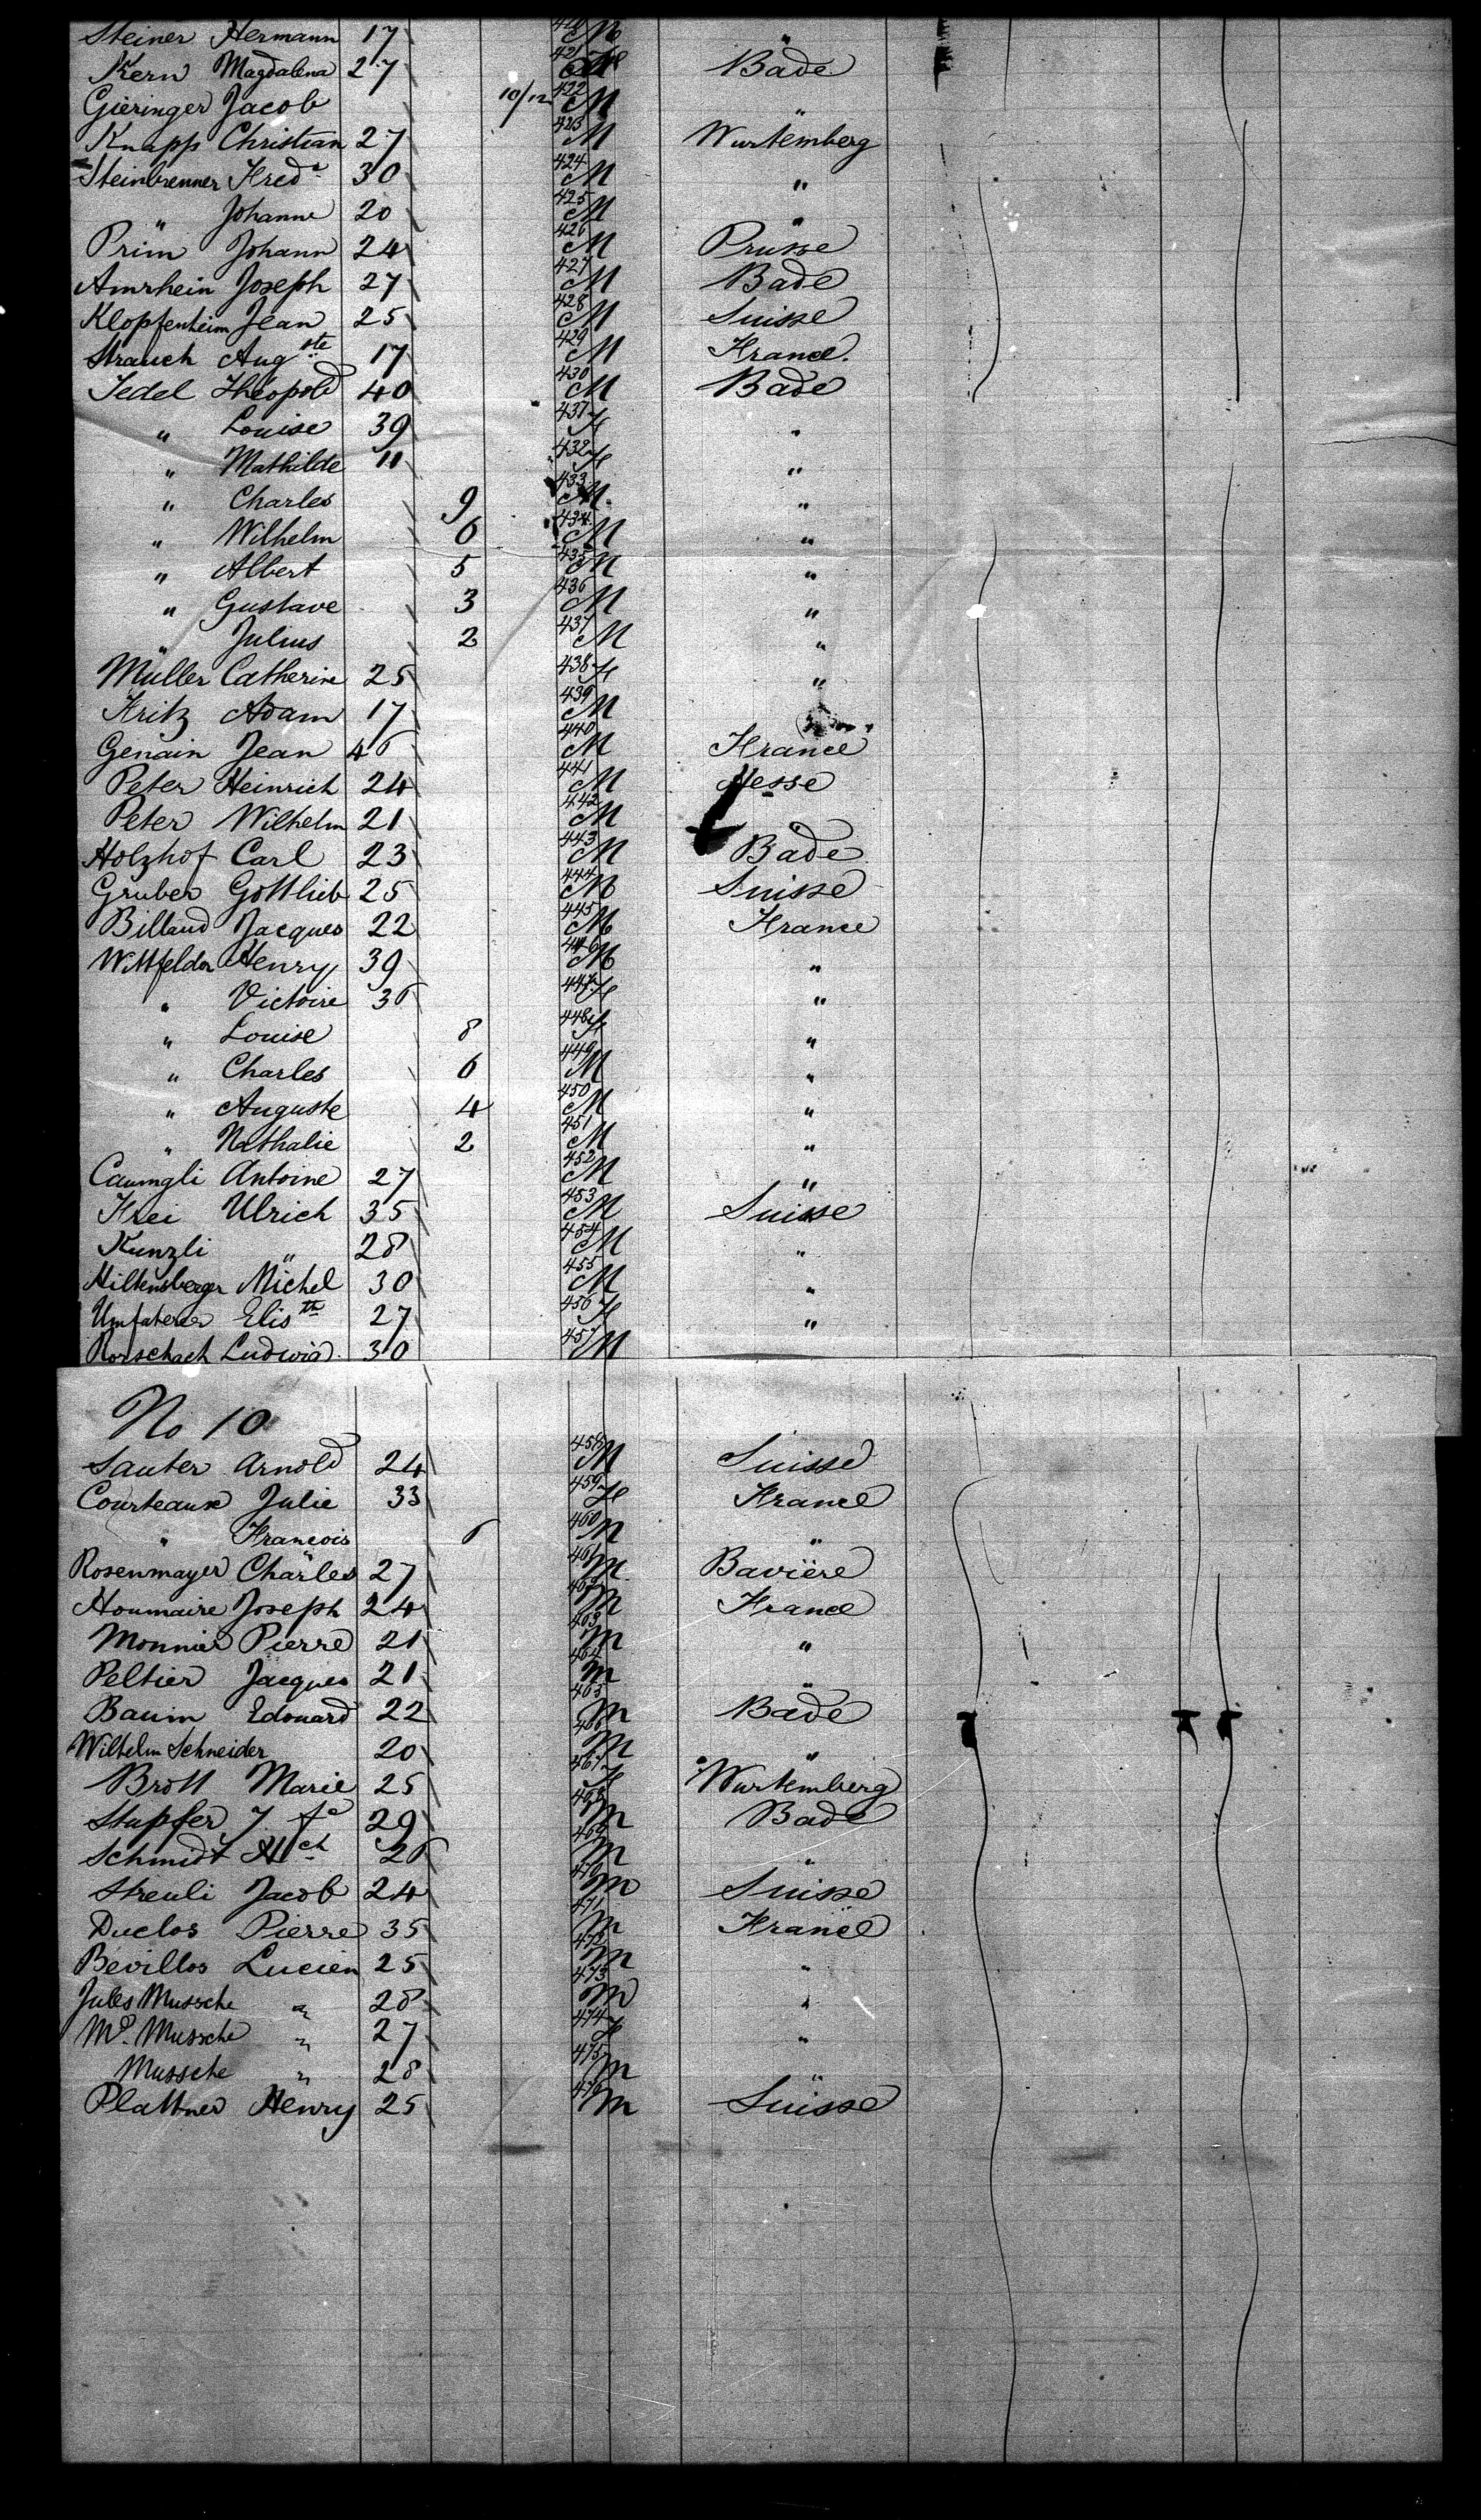 Steiner Hermann 17 420 M "
Kern Magdalena 27 421 F Bade
Gieringer Jacob 10/12 422 M "
Knapp Christian 27 423 M Wurtemberg
Steinbrenner Fred 30 424 M "
" Johanne 20 425 M "
Prim Johann 24 426 M Prusse
Amrhein Joseph 27 427 M Bade
Klopfenheim Jean 25 428 M Suisse
Strauch Aug ste 17 429 M France
Jedel Théopold 40 430 M Bade
" Louise 39 431 F "
" Mathilde 11 432 F "
" Charles 9 433 M "
" Wilhelm 6 434 M "
" Albert 5 435 M "
" Gustave 3 436 M "
" Julius 2 437 M "
Müller Catherine 25 438 F "
Fritz Adam 17 439 M
Genain Jean 46 440 M France
Peter Heinrich 24 441 M Hesse
Peter Wilhelm 21 442 M
Holzhof Carl 23 443 M Bade
Gruber Gottlieb 25 444 M Suisse
Billaud Jacques 22 445 M France
Henry 39 446 M "
" Victoire 36 447 F "
" Louise 8 448 F "
" Charles 6 449 M "
" Auguste 4 450 M "
" Nathalie 2 451 M "
Caumgli Antoine 27 452 M "
Frei Ulrich 35 453 M Suisse
Kunzli " 28 454 M "
Hiltensberger Michel 30 455 M "
Elis th 27 456 F "
Rorschach Ludwig 30 457 M
No 10
Sauter Arnold 24 458 M Suisse
Courteaux Julie 33 459 F France
" Francois 6 460 M "
Rosenmayer Charles 27 461 M Bavière
Houmaire Joseph 24 462 M France
Monnier Pierre 21 463 M "
Peltier Jacques 21 464 M "
Baum Edouard 22 465 M Bade
Wilhelm Schneider 20 466 M "
Brott Marie 25 467 F Wurtemberg
Stupfer J. 29 468 M Bade
Schmidt 26 469 M "
Streuli Jacob 24 470 M Suisse
Duclos Pierre 35 471 M France
Bevillos Lucien 25 472 M "
Jules Mussche " 28 473 M "
Me. Mussche " 27 474 F "
Mussche " 28 475 M "
Plattner Henry 25 476 M Suisse